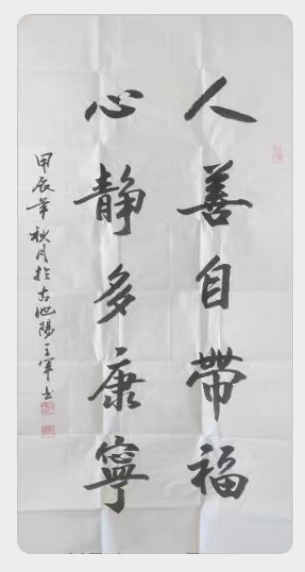 人善自带福
心静多康寧
甲辰年秋月於古池陽王軍书